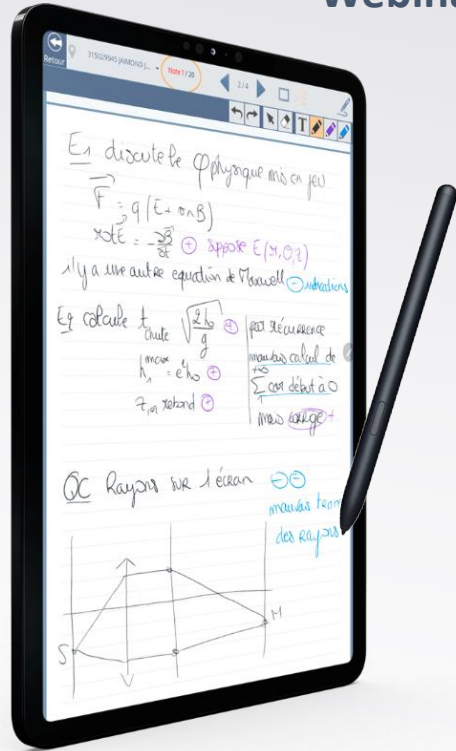 Webina
Retour
315029945 JAIMOND J...
Note 1 / 20
2/4
T
E1 discute le φ physique mis en jeu
F = q (E + v ∧ B)
rot E = - ∂B/∂t ⊕ suppose E (r, θ, z)
il y a une autre equation de Maxwell ⊖ indications
Eq calcule t chute √(2 h0 / g) ⊕
h1 max = e² h0 ⊕
rebond ⊕
par récurrence
mauvais calcul de
+∞
Σ car début à 0
1
mais corrigé +
QC Rayons sur l'écran ⊖⊖
mauvais
des rayons
S
M